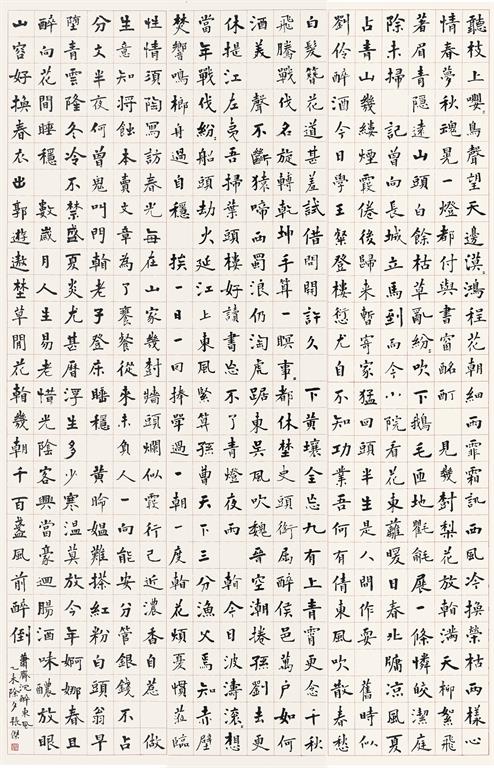 聽枝上嚶〻鳥聲望天邊漠〻鴻程花朝細雨霏霜訊西風冷換榮枯樣心
情春夢秋魂晃一燈都付與書窗酩酊 見幾對梨花放幹滿天柳絮飛
著眉青隱遠山頭白餘枯草亂紛〻吹下鵝毛匝地氍毹展一條憐皎潔庭
除未掃 記曾向長城立馬到而今小院看花東籬暖日春北牖涼風夏
占青山幾縷煙霞倦後歸來暫寄家猛回頭半生是人間作耍 舊時似
劉伶醉酒今日學王粲登樓愁尤自不知功業吾何有倩東風吹散春愁
白髮簪花道甚羞試借問開許久 下黃壤全忘九有上青霄更念千秋
飛騰戰伐名旋轉乾坤手算一瞑事〻都休埜史頭銜屈醉侯邑萬戶如何
酒美 聲不斷猿啼兩蜀浪仍淘虎踞東吳風吹魏晉空潮捲孫劉去更
休提江左夷吾掃葉頭樓好讀書忘不了青燈夜雨 幹今日波濤滾想
當年戰伐紛〻船頭劫火延江上東風緊算孫曹天下三分漁火焉知赤壁
焚響鳴榔舟過自穩 挨一日一回捧學過一朝一度幹花煩憂慣蒞臨
性情須陶寫訪春光每在山家幾對牆頭爛似霞行己近濃香自惹 做
生意知將蝕本賣文章為了饔餐從來未負人一向能安分管銀錢不占
分文半夜何曾鬼叫門幹老子登床睡穩 黃媼難搽紅粉白頭翁早
墮青雲隆冬冷不禁盛夏炎尤甚曆浮生多少寒溫莫放今年婀娜春且
醉向花間睡穩 數歲月人生易老惜光陰客興當豪迴腸酒味醲放眼
山容好換春衣出郭遊遨埜草閒花幹幾朝千百盞風前醉倒
蕭齋沈醉東風
乙未除夕張傑